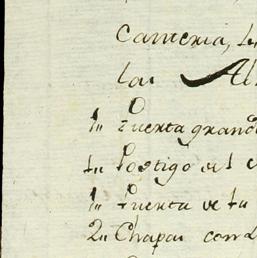 Canteria, 
las Al
1„ Puerta grand
1„ Postigo del
1„ Puerta de tu
2„ Chapas con